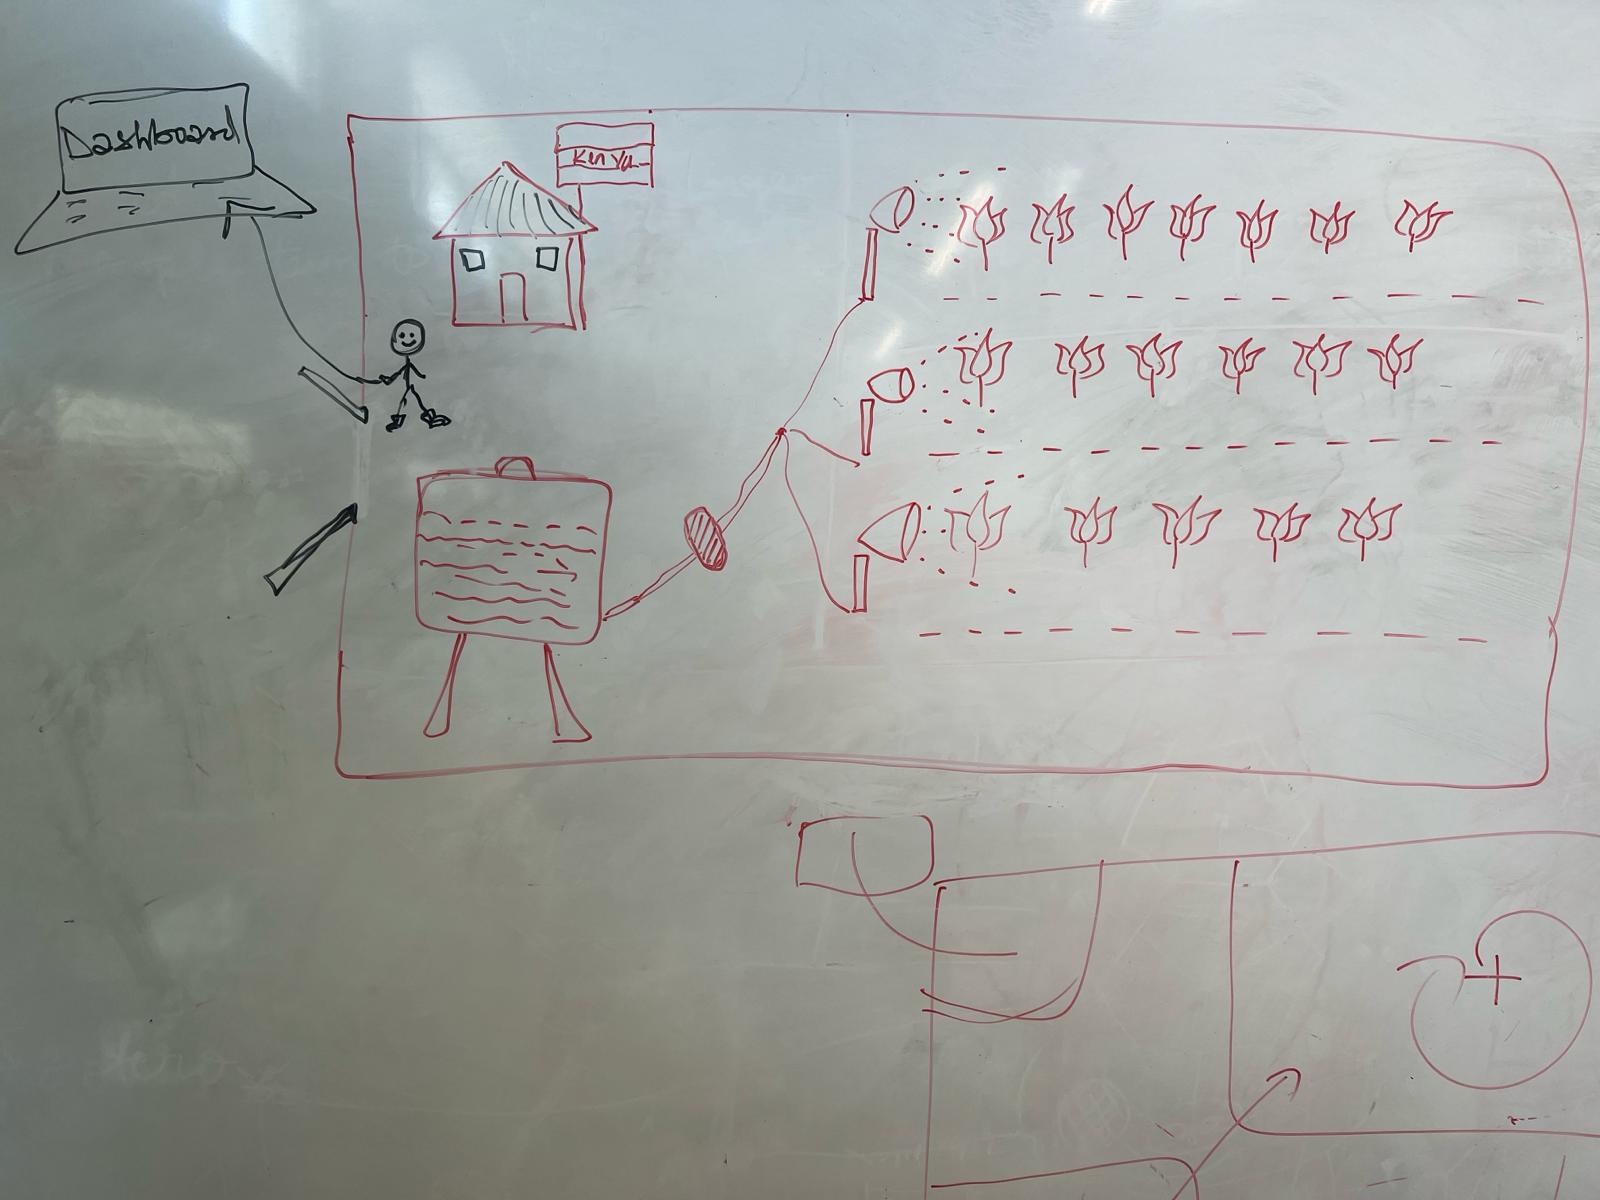 Dashboard
Kenya